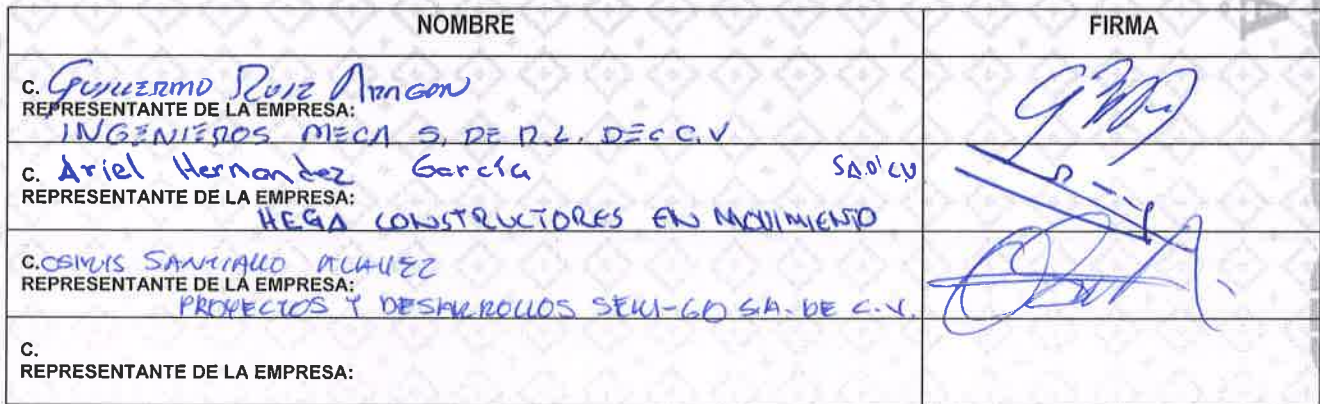 NOMBRE FIRMA
C. Guillermo Ruiz Aragon
REPRESENTANTE DE LA EMPRESA:
INGENIEROS MECA S. DE R.L. DE C.V
C. Ariel Hernandez García SA.D'CV
REPRESENTANTE DE LA EMPRESA:
HEGA CONSTRUCTORES EN MOVIMIENTO
C. SANTIAGO
REPRESENTANTE DE LA EMPRESA:
PROYECTOS Y DESARROLLOS S.A. DE C.V.
C.
REPRESENTANTE DE LA EMPRESA: